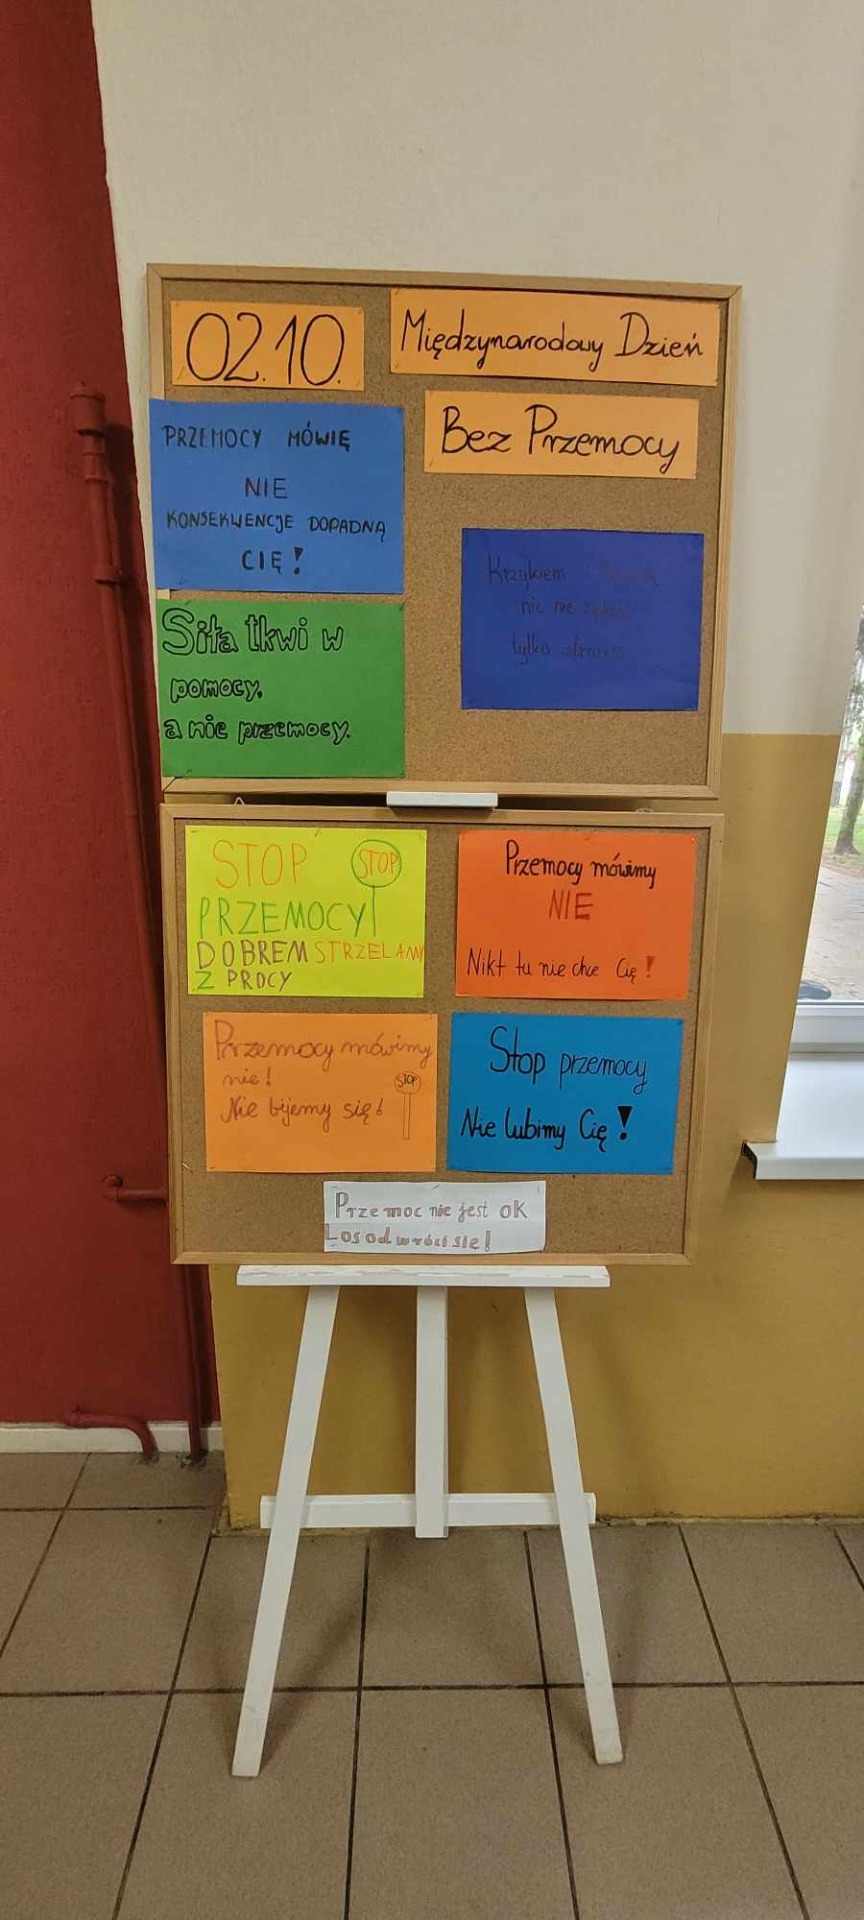 02.10.
Międzynarodowy Dzień
Bez Przemocy
PRZEMOCY MÓWIĘ
NIE
KONSEKWENCJE DOPADNĄ
CIĘ!
Krzykiem
nic nie
tylko
Siła tkwi w
pomocy,
a nie przemocy.
STOP
STOP
PRZEMOCY
DOBREM STRZELAMY
Z PROCY
Przemocy mówimy
NIE
Nikt tu nie chce Cię!
Przemocy mówimy
nie!
STOP
Nie bijemy się!
Stop przemocy
Nie lubimy Cię!
Przemoc nie jest OK
Los odwróci się!